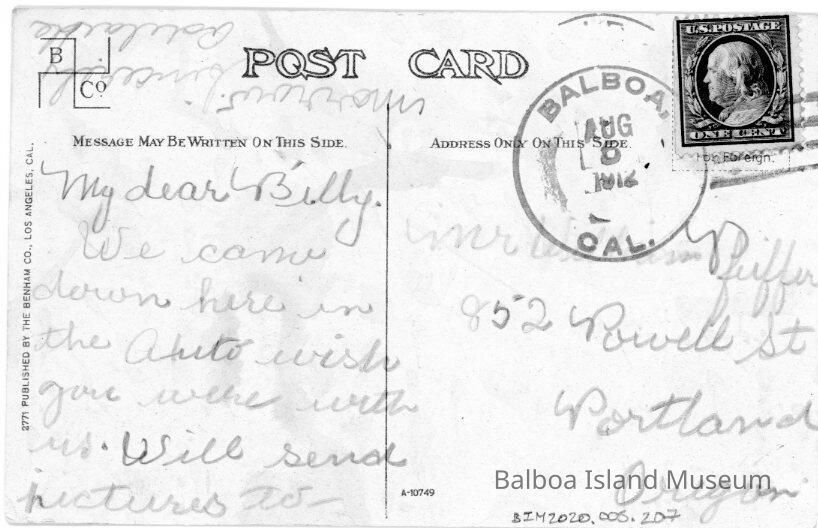 B
Co
POST CARD
U.S. POSTAGE
ONE CENT
For Foreign.
BALBOA,
AUG
8
1912
CAL.
MESSAGE MAY BE WRITTEN ON THIS SIDE.
ADDRESS ONLY ON THIS SIDE
2771 PUBLISHED BY THE BENHAM CO., LOS ANGELES, CAL.
My dear Billy.
We came
down here in
the Auto wish
you were with
us. Will send
pictures to
morrow.
Sincerely
Mr William Puffer
852 Powell St
Portland
Oregon
A-10749
Balboa Island Museum
BIM2020.008.207